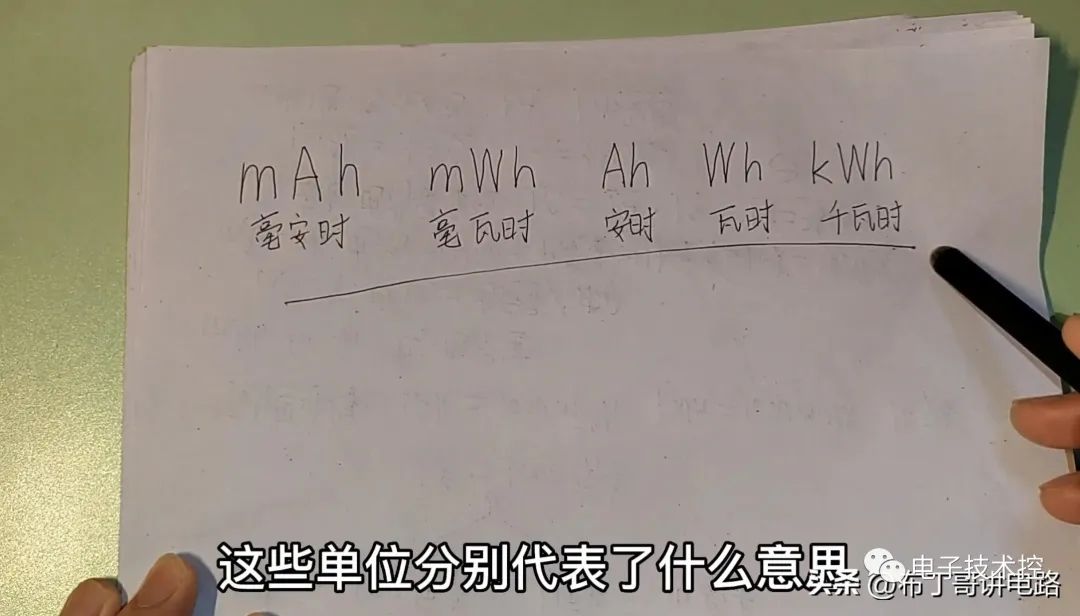 mAh mWh Ah Wh kWh
毫安时 毫瓦时 安时 瓦时 千瓦时
这些单位分别代表了什么意思
电子技术控
头条 @布丁哥讲电路